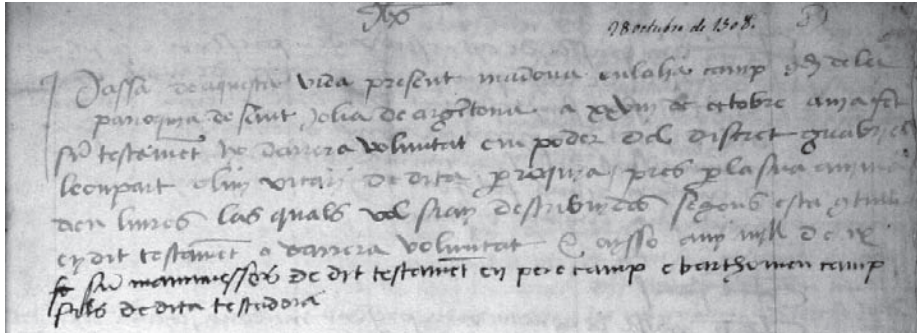 28 octubre de 1508.
Passa de aquesta vida present madona eulalia camp de la
parroquia de sant Jolia de argentona a xxviii de octobre avia fet
son testament e darrera voluntat en poder del discret guabriel
leopart olim vicari de dita parroquia pres per la sua anima
deu liures las quals vol sian destribuides segons esta contengut
en dit testament o darrera voluntat E aysso any mil D e
fo son marmessors de dit testament en pere camp e barthomeu camp
fills de dita testadora